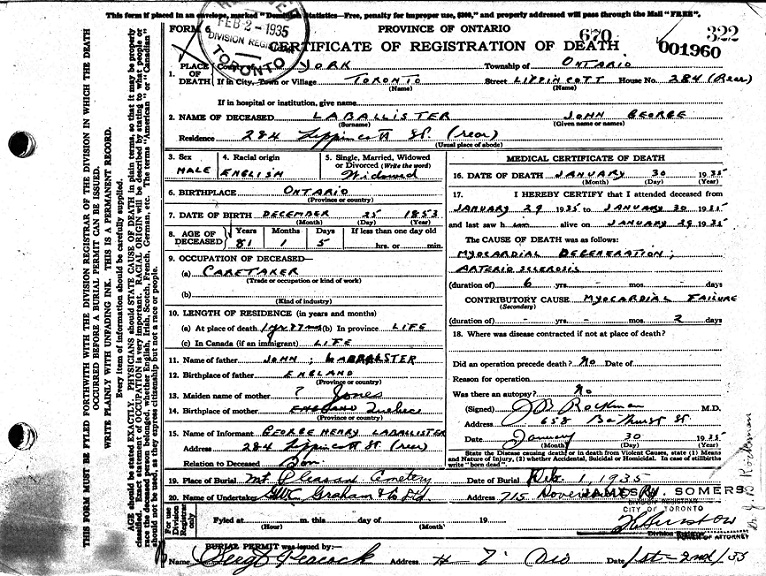 This form if placed in an envelope, marked "Dominion Statistics—Free, penalty for improper use, $300," and property addressed will pass through the Mail "FREE".
FORM 6
PROVINCE OF ONTARIO
670
322
FEB-2-1935
DIVISION REGISTRAR
TORONTO
CERTIFICATE OF REGISTRATION OF DEATH
001960
1. PLACE OF DEATH
YORK Township of ONTARIO
If in City, Town or Village TORONTO Street LIPPINCOTT House No. 284 (Rear)
(Name) (Name)
If in hospital or institution, give name
2. NAME OF DECEASED LABALLISTER JOHN GEORGE
(Surname) (Given name or names)
Residence 284 Lippincott St. (rear)
(Usual place of abode)
3. Sex MALE
4. Racial origin ENGLISH
5. Single, Married, Widowed or Divorced (Write the word) Widowed
6. BIRTHPLACE ONTARIO
(Province or country)
7. DATE OF BIRTH DECEMBER 25 1853
(Month) (Day) (Year)
8. AGE OF DECEASED Years 81 Months 1 Days 5 If less than one day old hrs. or min.
9. OCCUPATION OF DECEASED—
(a) CARETAKER
(Trade or occupation or kind of work)
(b)
(Kind of industry)
10. LENGTH OF RESIDENCE (in years and months)
(a) At place of death (b) In province LIFE
(c) In Canada (if an immigrant) LIFE
11. Name of father JOHN LABALLISTER
12. Birthplace of father ENGLAND
(Province or country)
13. Maiden name of mother ? Jones
14. Birthplace of mother ENGLAND Quebec
(Province or country)
15. Name of Informant GEORGE HENRY LABALLISTER
Address 284 Lippincott St (rear)
Relation to Deceased Son.
MEDICAL CERTIFICATE OF DEATH
16. DATE OF DEATH JANUARY 30 1935
(Month) (Day) (Year)
17. I HEREBY CERTIFY that I attended deceased from
JANUARY 29 1935 to JANUARY 30 1935
and last saw h alive on JANUARY 29 1935
The CAUSE OF DEATH was as follows:
MYOCARDIAL DEGENERATION;
ARTERIO SCLEROSIS
(duration of) 6 yrs. mos. days
CONTRIBUTORY CAUSE MYOCARDIAL FAILURE
(Secondary)
(duration of) yrs. mos. 2 days
18. Where was disease contracted if not at place of death?
Did an operation precede death? No Date of
Reason for operation
Was there an autopsy? No
(Signed) J B Rockman M.D.
Address 658 Bathurst St.
Date January 30 1935
(Month) (Day) (Year)
State the Disease causing death; or in death from Violent Causes, state (1) Means and Nature of Injury, (2) whether Accidental, Suicidal or Homicidal. In case of stillbirths write "born dead"
19. Place of Burial Mt. Pleasant Cemetery Date of Burial Feb 1, 1935
20. Name of Undertaker Graham Address 715
JAMES SOMERS
CITY OF TORONTO
Division
ATTORNEY
For use of Division Registrar only
Fyled at m. this day of 19
(Hour) (Month)
BURIAL PERMIT was issued by:—
Name Peacock Address Date 1st-2nd/35
THIS FORM MUST BE FYLED FORTHWITH WITH THE DIVISION REGISTRAR OF THE DIVISION IN WHICH THE DEATH
OCCURRED BEFORE A BURIAL PERMIT CAN BE ISSUED.
WRITE PLAINLY WITH UNFADING INK. THIS IS A PERMANENT RECORD.
Every item of information should be carefully supplied.
AGE should be stated EXACTLY. PHYSICIANS should STATE CAUSE OF DEATH in plain terms, so that it may be properly
classified. Exact statement of OCCUPATION is very important. RACIAL ORIGIN will be described by stating to what people or
race the deceased person belonged, whether English, Irish, Scotch, French, German, etc. The terms "American" or "Canadian"
should not be used, as they express citizenship but not a race or people.
Dr. J B Rockman